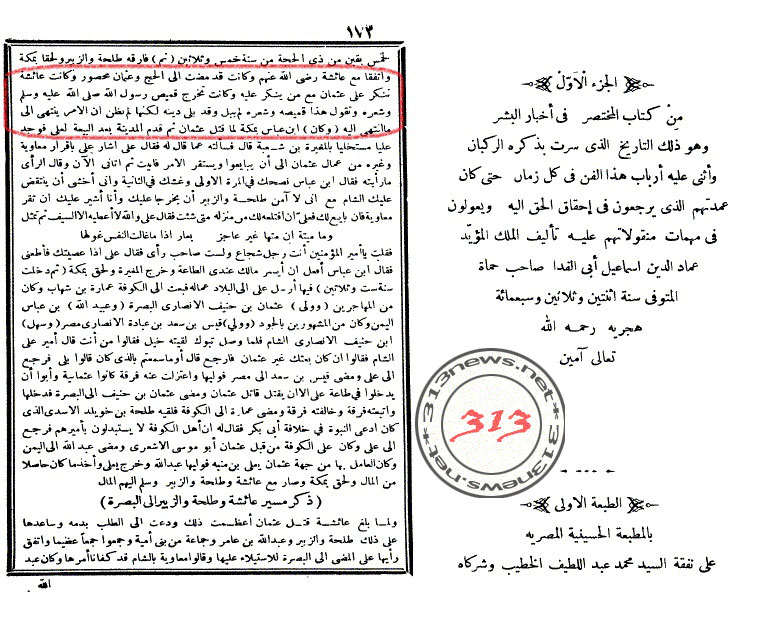 ١٧٢
لخمس بقين من ذي الحجة من سنة خمس وثلاثين (ثم) فارقه طلحة والزبير ولحقا بمكة
واتفقا مع عائشة رضى الله عنهم وكانت قد مضت الى الحج وعثمان محصور وكانت عائشة
تنكر على عثمان مع من ينكر عليه وكانت تخرج قميص رسول الله صلى الله عليه وسلم
وشعره وتقول هذا قميصه وشعره لم يبل وقد بلى دينه لكنها لم تظن ان الامر ينتهى الى
ما انتهى اليه (وكان) ابن عباس بمكة لما قتل عثمان ثم قدم المدينة بعد البيعة لعلى فوجد
عليا مستخليا بالمغيرة بن شعبة قال فسألته عما قال له فقال على اشار على باقرار معاوية
وغيره من عمال عثمان الى ان يبايعوا ويستقر الامر فابيت ثم اتانى الآن وقال الرأى
ما رأيته فقال ابن عباس نصحك فى المرة الاولى وغشك فى الثانية وانى أخشى أن ينتقض
عليك الشام مع انى لا آمن طلحة والزبير أن يخرجا عليك وأنا أشير عليك ان تقر
معاوية فان بايع لك فعلى ان اقتلعه لك من منزله متى شئت فقال على والله لا أعطيه الا السيف ثم تمثل
وما ميتة ان متها غير عاجز بعار اذا ما غالت النفس غولها
فقلت يا أمير المؤمنين أنت رجل شجاع ولست صاحب رأى فقال على اذا عصيتك فأطعنى
فقال ابن عباس أفعل ان أيسر مالك عندى الطاعة وخرج المغيرة ولحق بمكة (ثم دخلت
سنة ست وثلاثين) فيها أرسل على الى البلاد عماله فبعث الى الكوفة عمارة بن شهاب وكان
من المهاجرين (وولى) عثمان بن حنيف الانصارى البصرة (وعبيد الله) بن عباس
اليمن وكان من المشهورين بالجود (وولى) قيس بن سعد بن عبادة الانصارى مصر (وسهل)
ابن حنيف الانصارى الشام فلما وصل تبوك لقيته خيل فقالوا من أنت قال أمير على
الشام فقالوا ان كان بعثك غير عثمان فارجع قال أوما سمعتم بالذى كان قالوا بلى فرجع
الى على ومضى قيس بن سعد الى مصر فوليها واعتزلت عنه فرقة كانوا عثمانية وأبوا أن
يدخلوا فى طاعة على الا ان يقتل قاتل عثمان ومضى عثمان بن حنيف الى البصرة فدخلها
واتبعته فرقة و خالفته فرقة ومضى عمارة الى الكوفة فلقيه طلحة بن خويلد الاسدى الذى
كان ادعى النبوة فى خلافة أبى بكر فقال له ان أهل الكوفة لا يستبدلون بأميرهم فرجع
الى على وكان على الكوفة من قبل عثمان أبو موسى الاشعرى ومضى عبيد الله الى اليمن
وكان العامل بها من جهة عثمان يعلى بن منبه فوليها عبيد الله وخرج يعلى وأخذ ما كان حاصلا
من المال ولحق بمكة وصار مع عائشة وطلحة والزبير وسلم اليهم المال
(ذكر مسير عائشة وطلحة والزبير الى البصرة)
ولما بلغ عائشة قتل عثمان أعظمت ذلك ودعت الى الطلب بدمه وساعدها
على ذلك طلحة والزبير وعبد الله بن عامر وجماعة من بنى أمية وجمعوا جمعا عظيما واتفق
رأيها على المضى الى البصرة للاستيلاء عليها وقالوا معاوية بالشام قد كفانا أمرها وكان عبد
الله
الجزء الاول
من كتاب المختصر فى أخبار البشر
وهو ذلك التاريخ الذى سرت بذكره الركبان
وأثنى عليه أرباب هذا الفن فى كل زمان حتى كان
عمدتهم الذى يرجعون فى إحقاق الحق اليه ويعولون
فى مهمات منقولاتهم عليه تأليف الملك المؤيد
عماد الدين اسماعيل أبى الفدا صاحب حماة
المتوفى سنة اثنتين وثلاثين وسبعمائة
هجريه رحمه الله
تعالى آمين
313news.net
313
313news.net
الطبعة الاولى
بالمطبعة الحسينية المصريه
على نفقة السيد محمد عبد اللطيف الخطيب وشركاه